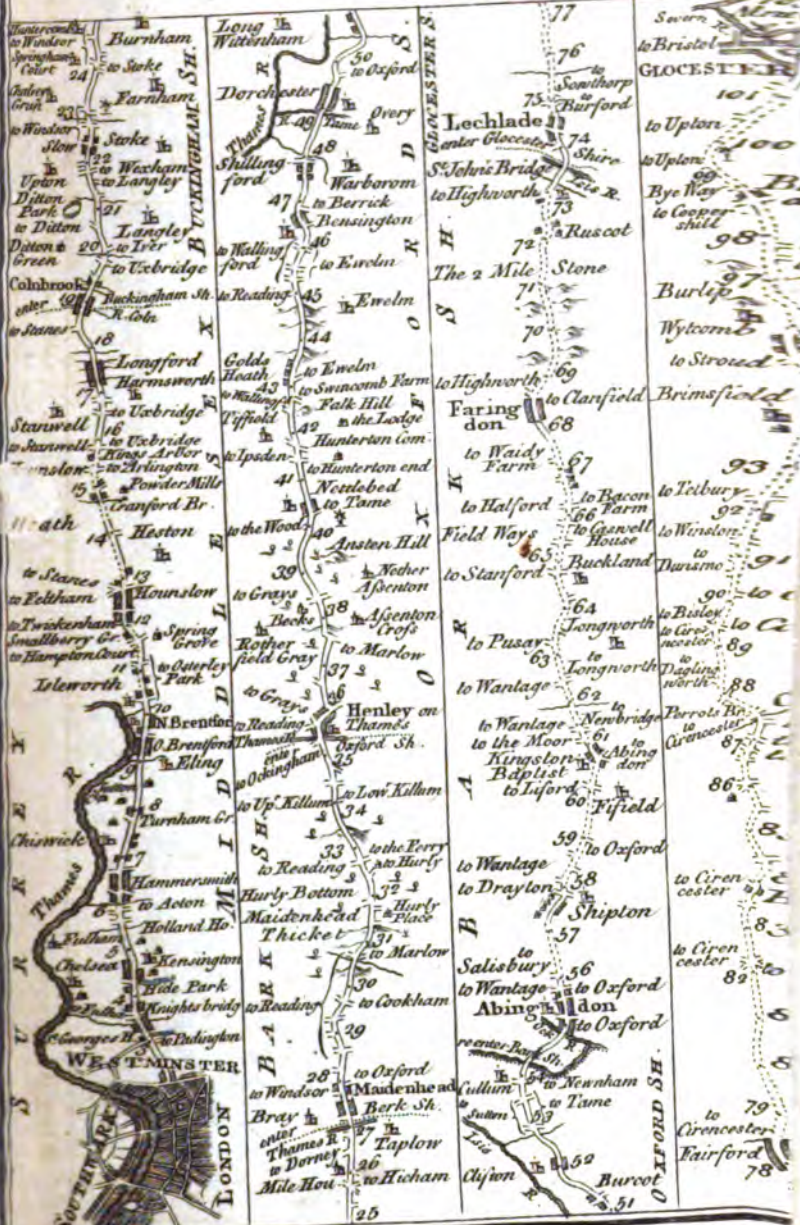 Huntercomb
to Windsor
Burnham
Springham
Court
24
to Stoke
Chalvers
Grun
Farnham
23
to Windsor
Slow
Stoke
22
to Wexham
to Langley
Upton
Ditton
Park
21
to Ditton
Langley
Ditton
Green
20
to Iver
to Uxbridge
Colnbrook
enter
19
Buckingham Sh.
R. Coln
to Stanes
18
Longford
Harmsworth
17
to Uxbridge
Stanwell
16
to Stanwell
to Uxbridge
Kings Arbor
to Arlington
Powder Mills
15
Cranford Br.
Heath
14
Heston
to Stanes
13
to Feltham
Hounslow
to Twickenham
12
Smallberry Gr.
Spring
Grove
to Hampton Court
11
to Osterley
Park
Isleworth
10
N. Brentford
O. Brentford
9
Eling
8
Turnham Gr.
Chiswick
7
Thames R
Hammersmith
6
to Acton
Holland Ho.
Fulham
5
Kensington
Chelsea
Hide Park
4
Knightsbridg
to Fulh
St. Georges H.
to Padington
WESTMINSTER
LONDON
SOUTHWARK
SURREY
MIDDLESEX
BUCKINGHAM SH.
Long
Wittenham
50
to Oxford
Dorchester
Thames R
R
49
Tame
Overy
48
Shilling
ford
Warborom
47
to Berrick
Bensington
46
to Walling
ford
to Ewelm
to Reading
45
Ewelm
44
Golds
Heath
to Ewelm
43
to Swincomb Farm
to Wallingf
Falk Hill
Tiffield
the Lodge
42
Hunterton Com.
to Ipsden
to Hunterton end
41
Nettlebed
to Tame
to the Wood
40
Ansten Hill
39
Nether
Assenton
to Grays
38
Becks
Assenton
Cross
Rother
field Gray
to Marlow
37
to Grays
36
Henley on
Thames
to Reading
Thames R
enter
Oxford Sh.
to Ockingham
35
to Up. Killum
to Low. Killum
34
33
to the Ferry
to Hurly
to Reading
Hurly Bottom
32
Hurly
Place
Maidenhead
Thicket
31
to Marlow
30
to Reading
to Cookham
29
28
to Oxford
to Windsor
Maidenhead
Bray
Berk Sh.
enter
27
Thames R
Taplow
to Dorney
26
Mile Hou
to Hicham
25
BARK SH.
OXFORD S.
77
76
to
Sowthorp
75
to
Burford
Lechlade
enter Glocester
Shire
74
St. John's Bridg
Isis R.
to Highworth
73
Ruscot
72
The 2 Mile
Stone
71
70
69
to Highworth
to Clanfield
Faring
don
68
to Waidy
Farm
67
to Bacon
Farm
to Halford
66
to Caswell
House
Field Ways
65
Buckland
to Stanford
64
Longworth
to Pusay
63
to
Longworth
to Wantage
62
to Wantage
Newbridge
to the Moor
61
to
Abing
don
Kingston
Baptist
to Liford
60
Fifield
59
to Oxford
to Wantage
58
to Drayton
Shipton
57
to
Salisbury
56
to Wantage
to Oxford
Abing
don
Ock R
to Oxford
re enter Bark Sh.
Cullum
54
to Newnham
to
Sutton
to Tame
53
Isis R
52
Clifton
Burcot
51
BARK SH.
GLOCESTER S.
OXFORD SH.
Severn R
to Bristol
GLOCESTER
101
to Upton
100
to Upton
99
Bye Way
to Cooper
shill
98
97
Burlip
Wytcomb
to Stroud
Brimsfield
93
to Tetbury
92
to Winston
to
Dunsmo
91
90
to Bisley
to Ciren
cester
89
to
Dagling
worth
88
Perrots Br.
to
Cirencester
87
86
to Ciren
cester
83
to Ciren
cester
82
79
to
Cirencester
Fairford
78